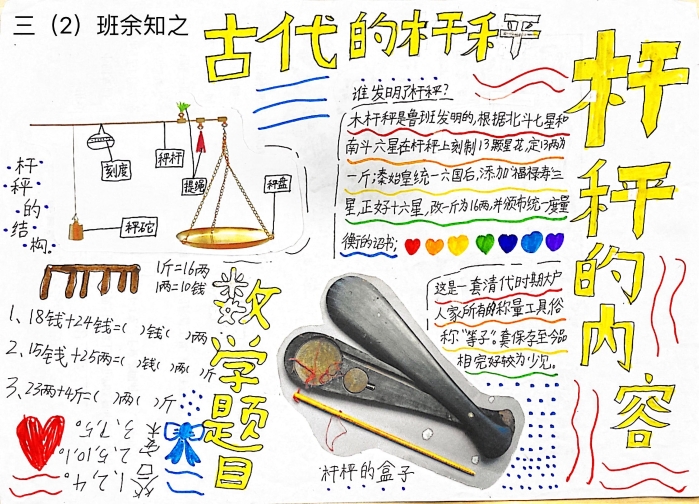 三（2）班余知之
古代的杆秤
杆秤的内容
杆秤的结构.
刻度
秤杆
提绳
秤盘
秤砣
谁发明了杆秤?
木杆秤是鲁班发明的,根据北斗七星和
南斗六星在杆秤上刻制13颗星花,定13两为
一斤;秦始皇统一六国后,添加"福禄寿"三
星,正好十六星,改一斤为16两,并颁布统一度量
衡的诏书;
这是一套清代时期大户
人家所有的称量工具俗
称"等子"。套保存至今品
相完好较为少见。
1斤=16两
1两=10钱
数学题目
1、18钱+24钱=( )钱( )两
2、15钱+25两=( )钱( )两( )斤
3、23两+4斤=( )两( )斤
答案
1.2,4。
2.5,10.1。
3.7.5。
杆秤的盒子